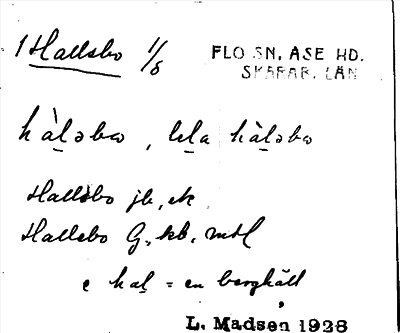 1 Hallsbo 1/8 FLO SN, ÅSE HD.
SKARAB. LÄN
hàl̠əbw, lil̠a hàl̠əbw
Hallsbo jb, ek
Hallebo G, kb, mtl
e hal̠ = en berghäll
L. Madsen 1928